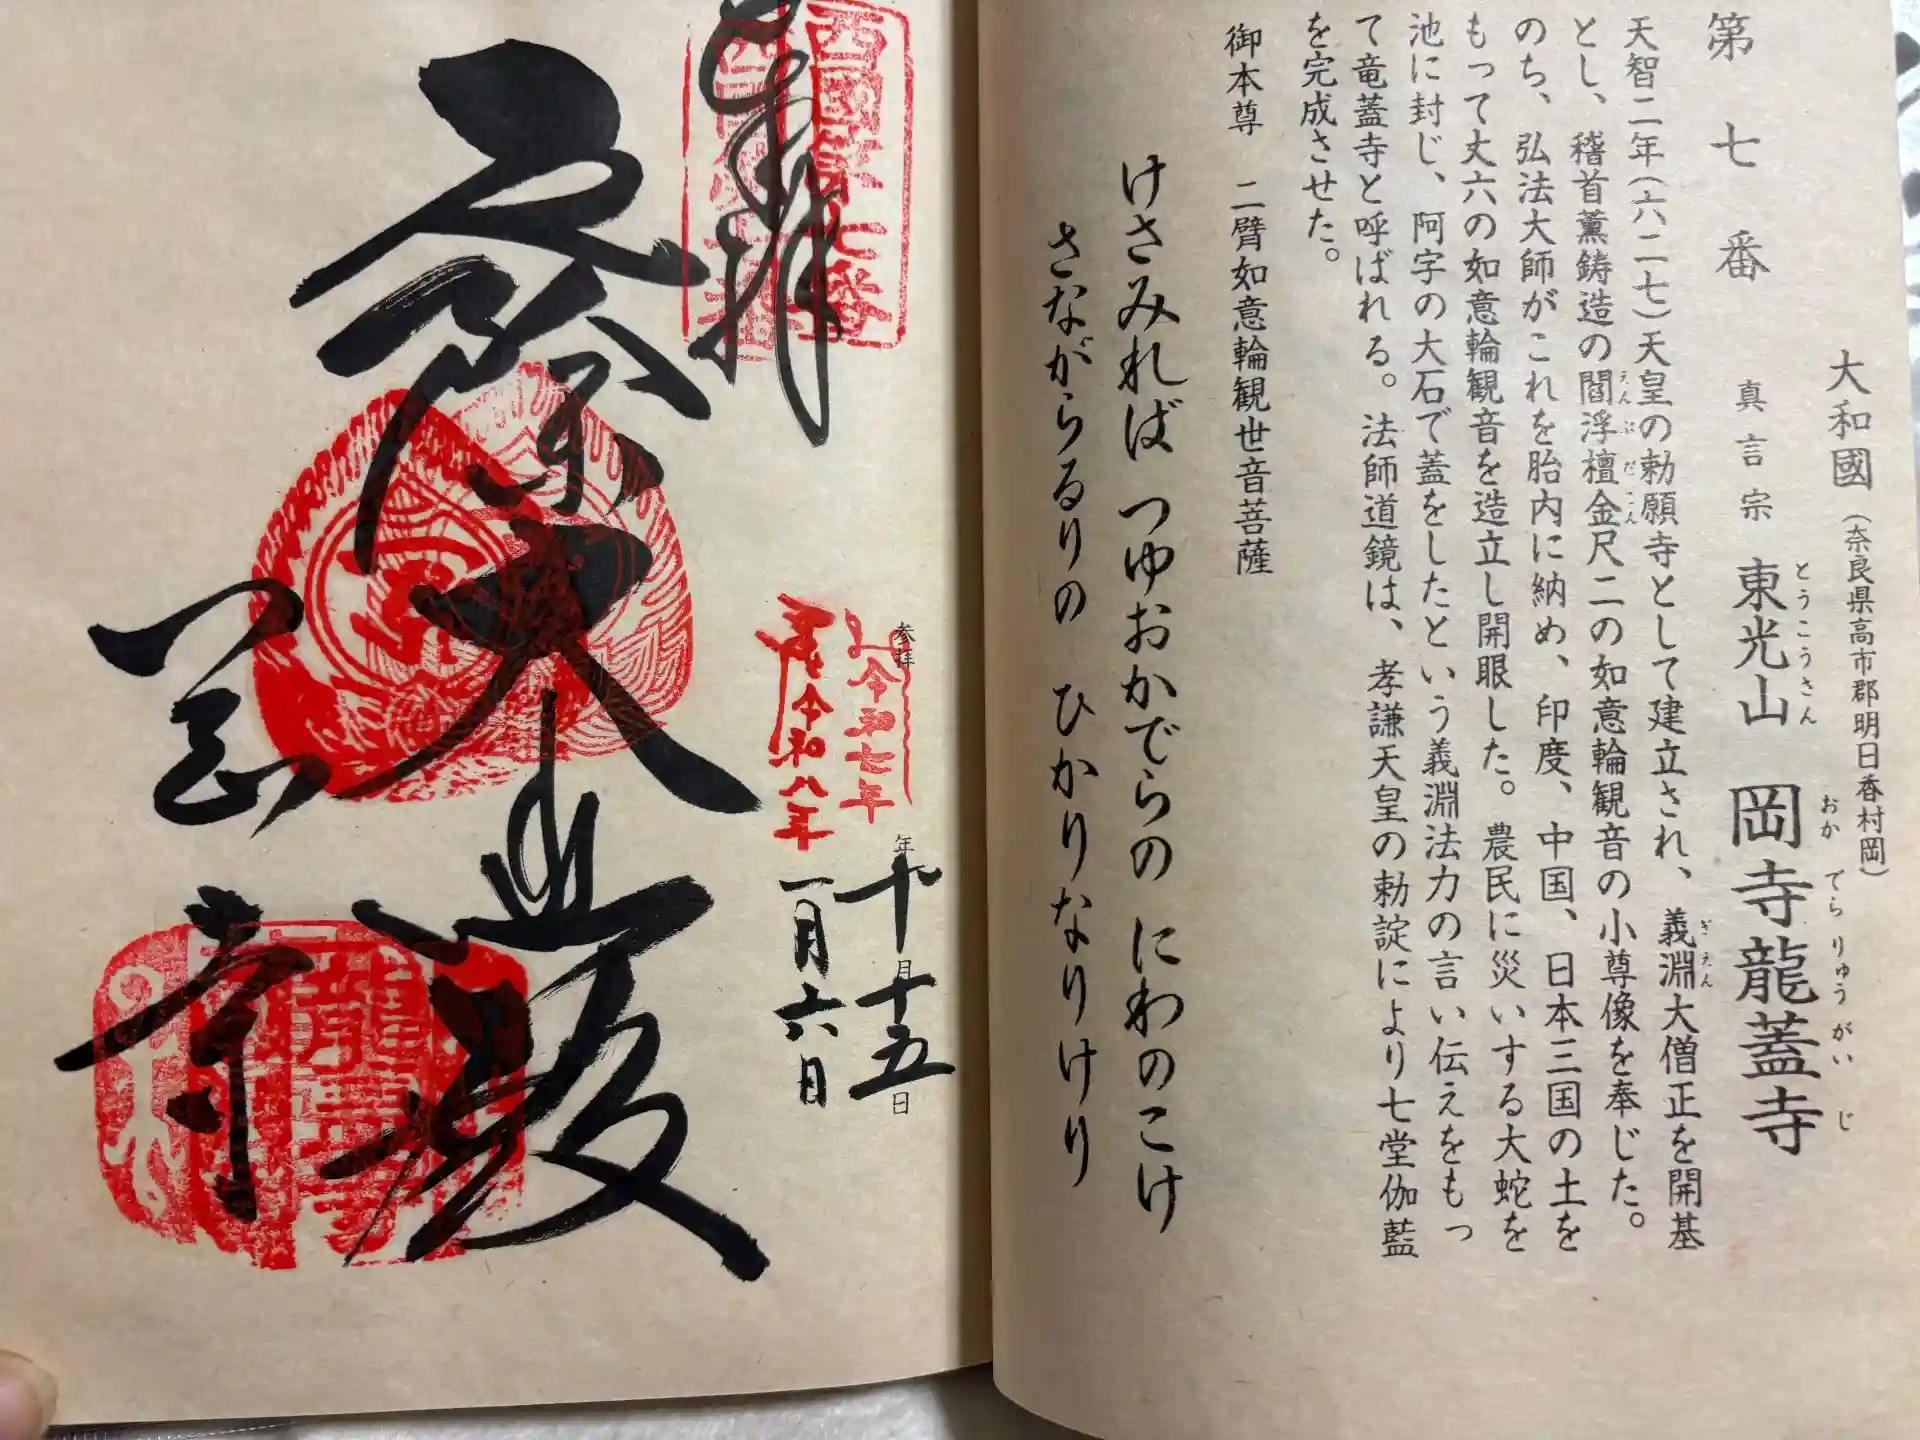 大和國（奈良県高市郡明日香村岡）
第七番 真言宗 東光山 岡寺龍蓋寺
とうこうさん おか でら りゅう がい じ
天智二年（六二七）天皇の勅願寺として建立され、義淵大僧正を開基
ぎえん
とし、稽首薫鋳造の閻浮檀金尺二の如意輪観音の小尊像を奉じた。
えんぶだごん
のち、弘法大師がこれを胎内に納め、印度、中国、日本三国の土を
もって丈六の如意輪観音を造立し開眼した。農民に災いする大蛇を
池に封じ、阿字の大石で蓋をしたという義淵法力の言い伝えをもっ
て竜蓋寺と呼ばれる。法師道鏡は、孝謙天皇の勅諚により七堂伽藍
を完成させた。
御本尊 二臂如意輪観世音菩薩
けさみれば つゆおかでらの にわのこけ
さながらるりの ひかりなりけり
参拝 令和七年 年 十月十五日
令和八年 一月六日
西國第七番
奉拝
岡寺